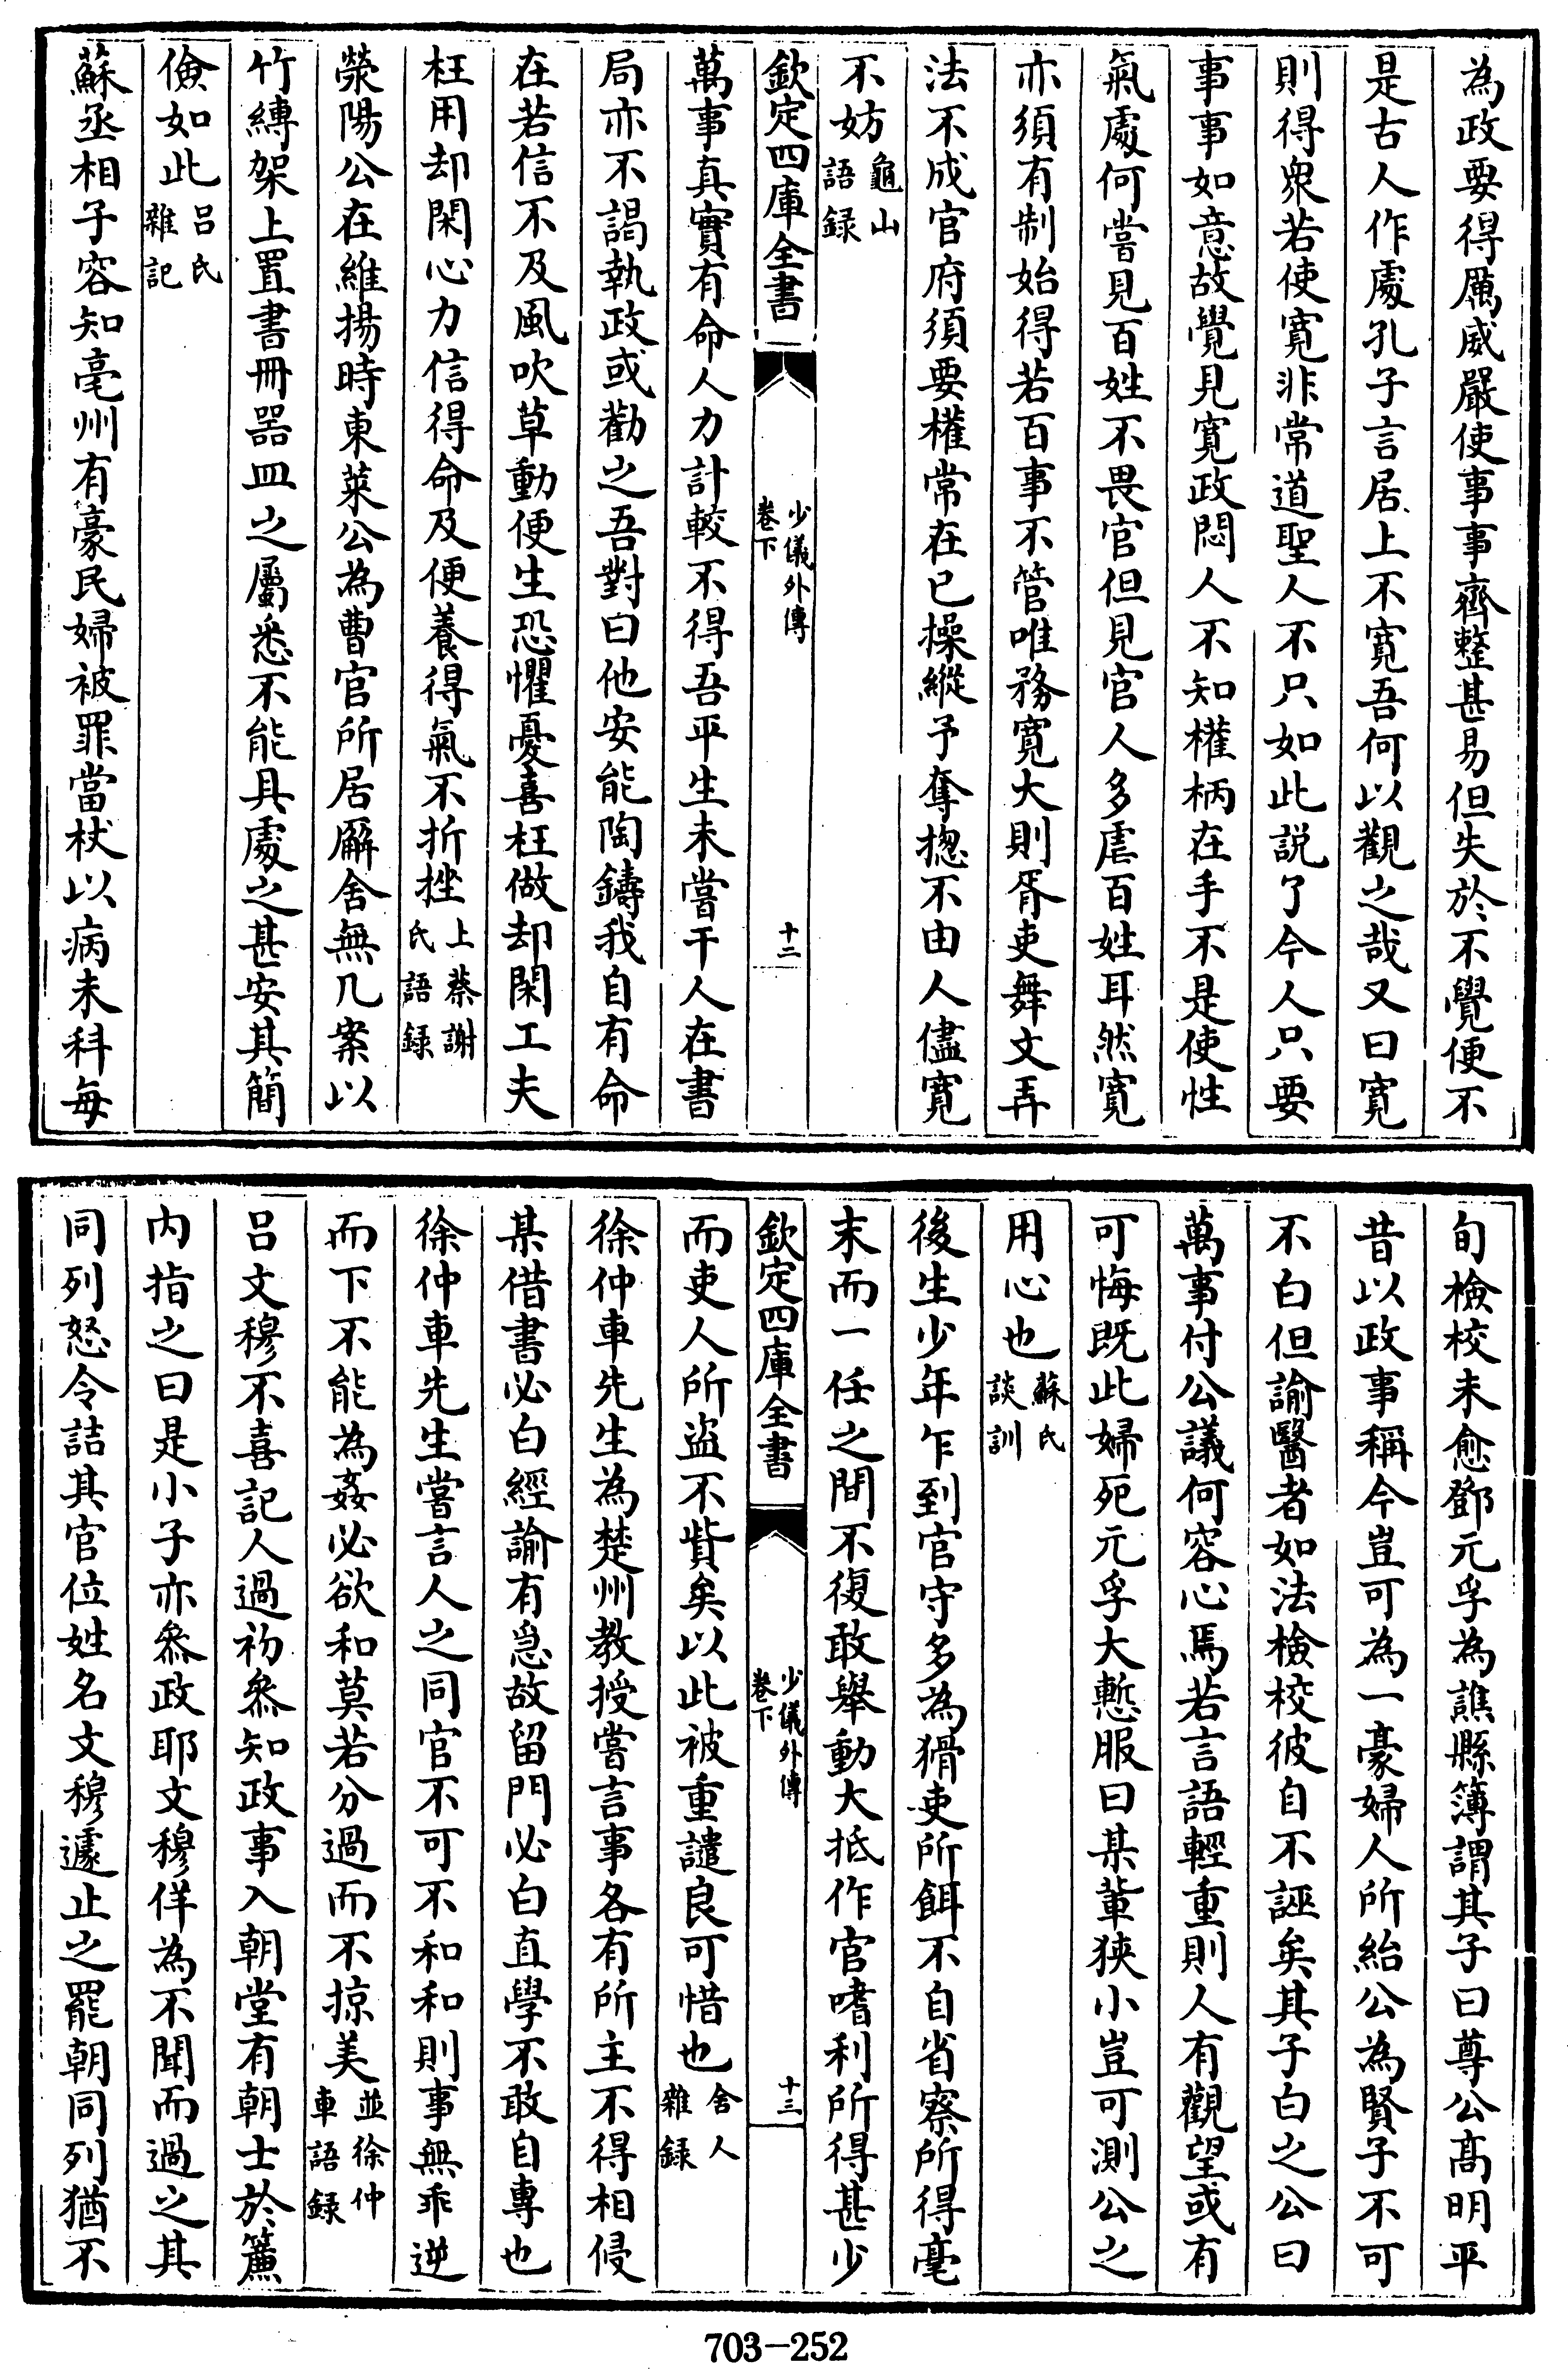 為政要得厲威嚴使事事齊整甚易但失於不覺便不
是古人作處孔子言居上不寛吾何以觀之哉又曰寛
則得衆若使寛非常道聖人不只如此説了今人只要
事事如意故覺見寛政悶人不知權柄在手不是使性
氣處何嘗見百姓不畏官但見官人多虐百姓耳然寛
亦須有制始得若百事不管唯務寛大則胥吏舞文弄
法不成官府須要權常在已操縱予奪摠不由人儘寛
不妨龜山語録
欽定四庫全書
少儀外傳
卷下
十二
萬事真實有命人力計較不得吾平生未嘗干人在書
局亦不謁執政或勸之吾對曰他安能陶鑄我自有命
在若信不及風吹草動便生恐懼憂喜枉做却閑工夫
枉用却閑心力信得命及便養得氣不折挫上蔡謝氏語録
滎陽公在維揚時東萊公為曹官所居廨舍無几案以
竹縛架上置書冊器皿之屬悉不能具處之甚安其簡
儉如此呂氏雜記
蘇丞相子容知亳州有豪民婦被罪當杖以病未科每
旬檢校未愈鄧元孚為譙縣簿謂其子曰尊公髙明平
昔以政事稱今豈可為一豪婦人所紿公為賢子不可
不白但諭醫者如法檢校彼自不誣矣其子白之公曰
萬事付公議何容心焉若言語輕重則人有觀望或有
可悔既此婦死元孚大慙服曰某輩狹小豈可測公之
用心也蘇氏談訓
後生少年乍到官守多為猾吏所餌不自省察所得毫
末而一任之間不復敢舉動大抵作官嗜利所得甚少
欽定四庫全書
少儀外傳
卷下
十三
而吏人所盜不貲矣以此被重譴良可惜也舍人雜録
徐仲車先生為楚州教授嘗言事各有所主不得相侵
某借書必白經諭有急故留門必白直學不敢自專也
徐仲車先生嘗言人之同官不可不和和則事無乖逆
而下不能為姦必欲和莫若分過而不掠美並徐仲車語録
呂文穆不喜記人過初叅知政事入朝堂有朝士於簾
内指之曰是小子亦叅政耶文穆佯為不聞而過之其
同列怒令詰其官位姓名文穆遽止之罷朝同列猶不
703-252